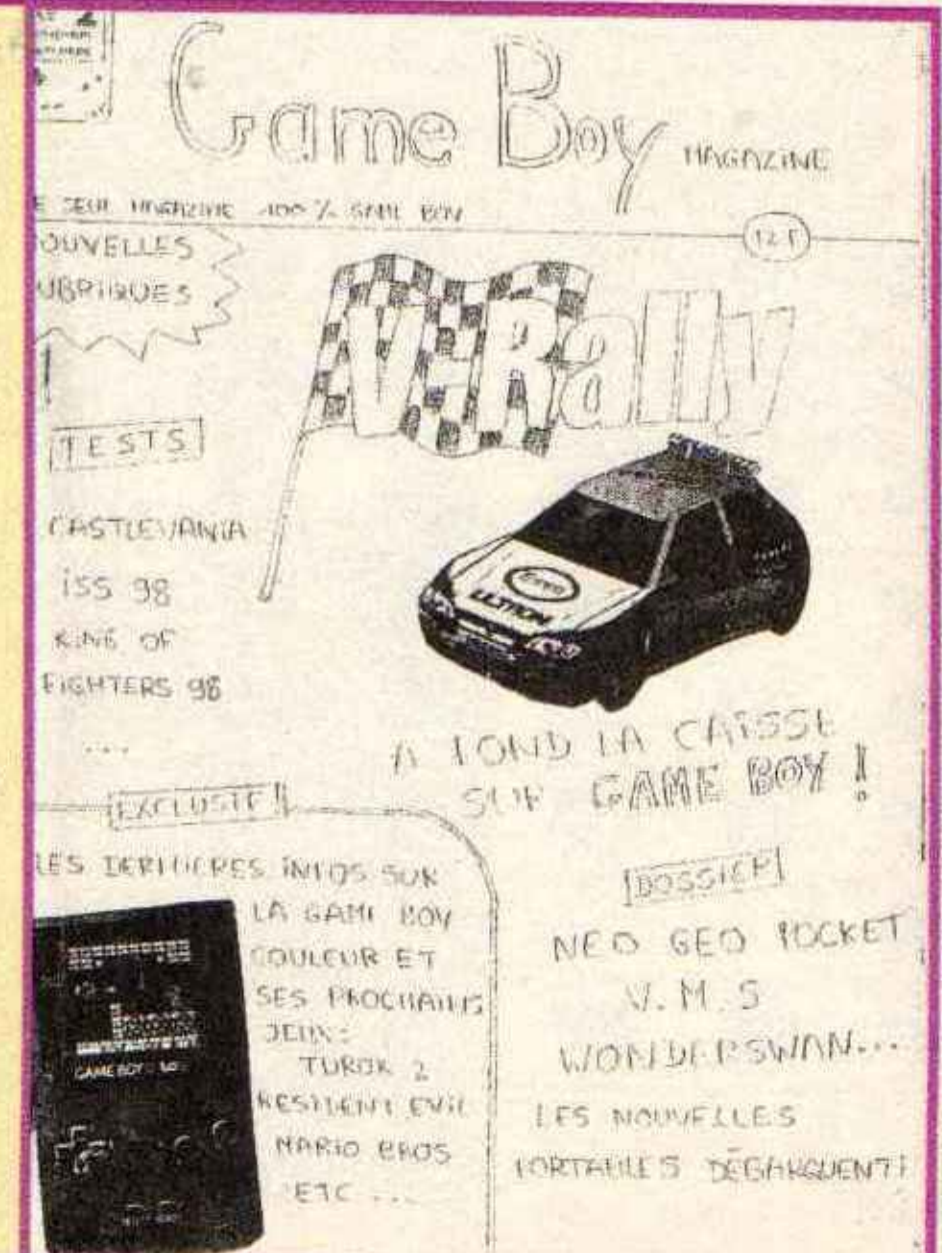 Game Boy MAGAZINE
E SEUL MAGAZINE 100 % GAME BOY
12 F
OUVELLES
UBRIQUES
V-Rally
TESTS
CASTLEVANIA
ISS 98
KING OF
FIGHTERS 98
....
A FOND LA CAISSE
SUR GAME BOY !
EXCLUSIF !
LES DERNIERES INFOS SUR
LA GAME BOY
COULEUR ET
SES PROCHAINS
JEUX:
TUROK 2
RESIDENT EVIL
MARIO BROS
ETC ...
GAME BOY
DOSSIER
NEO GEO POCKET
V.M.S
WONDERSWAN...
LES NOUVELLES
PORTABLES DÉBARQUENT!